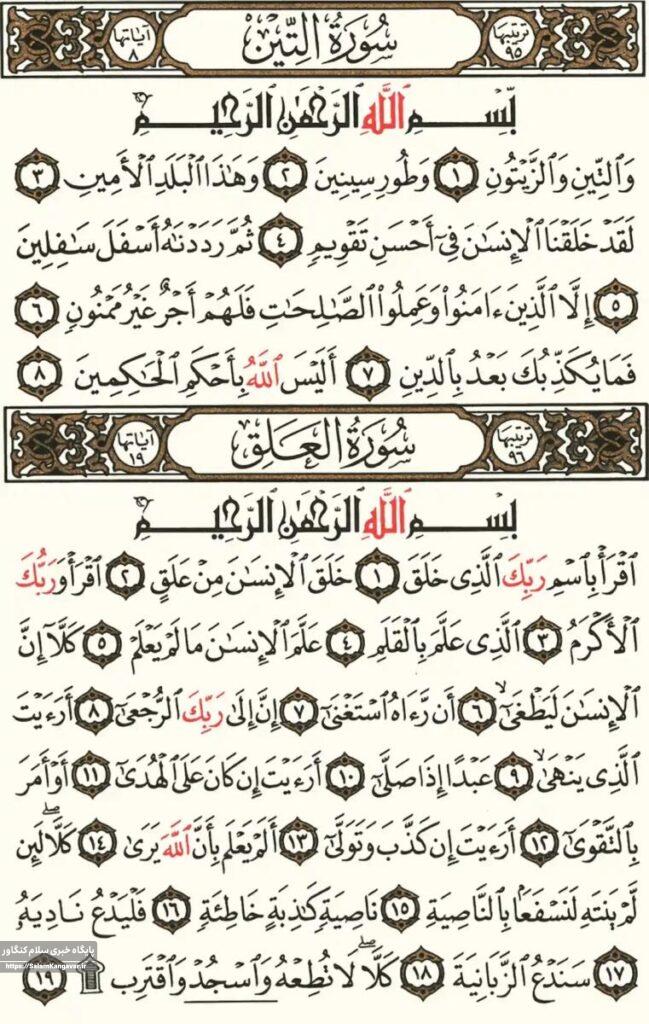 ترتيبها ٩٥ سُورَةُ التِّينِ آياتها ٨
بِّسْمِ ٱللَّهِ ٱلرَّحْمَٰنِ ٱلرَّحِيمِ
وَٱلتِّينِ وَٱلزَّيْتُونِ ١ وَطُورِ سِينِينَ ٢ وَهَٰذَا ٱلْبَلَدِ ٱلْأَمِينِ ٣
لَقَدْ خَلَقْنَا ٱلْإِنسَٰنَ فِىٓ أَحْسَنِ تَقْوِيمٍ ٤ ثُمَّ رَدَدْنَٰهُ أَسْفَلَ سَٰفِلِينَ
٥ إِلَّا ٱلَّذِينَ ءَامَنُوا۟ وَعَمِلُوا۟ ٱلصَّٰلِحَٰتِ فَلَهُمْ أَجْرٌ غَيْرُ مَمْنُونٍ ٦
فَمَا يُكَذِّبُكَ بَعْدُ بِٱلدِّينِ ٧ أَلَيْسَ ٱللَّهُ بِأَحْكَمِ ٱلْحَٰكِمِينَ ٨
ترتيبها ٩٦ سُورَةُ العَلَقِ آياتها ١٩
بِسْمِ ٱللَّهِ ٱلرَّحْمَٰنِ ٱلرَّحِيمِ
ٱقْرَأْ بِٱسْمِ رَبِّكَ ٱلَّذِى خَلَقَ ١ خَلَقَ ٱلْإِنسَٰنَ مِنْ عَلَقٍ ٢ ٱقْرَأْ وَرَبُّكَ
ٱلْأَكْرَمُ ٣ ٱلَّذِى عَلَّمَ بِٱلْقَلَمِ ٤ عَلَّمَ ٱلْإِنسَٰنَ مَا لَمْ يَعْلَمْ ٥ كَلَّآ إِنَّ
ٱلْإِنسَٰنَ لَيَطْغَىٰٓ ٦ أَن رَّءَاهُ ٱسْتَغْنَىٰٓ ٧ إِنَّ إِلَىٰ رَبِّكَ ٱلرُّجْعَىٰٓ ٨ أَرَءَيْتَ
ٱلَّذِى يَنْهَىٰ ٩ عَبْدًا إِذَا صَلَّىٰٓ ١٠ أَرَءَيْتَ إِن كَانَ عَلَى ٱلْهُدَىٰٓ ١١ أَوْ أَمَرَ
بِٱلتَّقْوَىٰٓ ١٢ أَرَءَيْتَ إِن كَذَّبَ وَتَوَلَّىٰٓ ١٣ أَلَمْ يَعْلَم بِأَنَّ ٱللَّهَ يَرَىٰ ١٤ كَلَّا لَئِن
لَّمْ يَنتَهِ لَنَسْفَعًۢا بِٱلنَّاصِيَةِ ١٥ نَاصِيَةٍ كَٰذِبَةٍ خَاطِئَةٍ ١٦ فَلْيَدْعُ نَادِيَهُۥ
١٧ سَنَدْعُ ٱلزَّبَانِيَةَ ١٨ كَلَّا لَا تُطِعْهُ وَٱسْجُدْ وَٱقْتَرِب ۩ ١٩
پایگاه خبری سلام کنگاور
https://SalamKangavar.ir